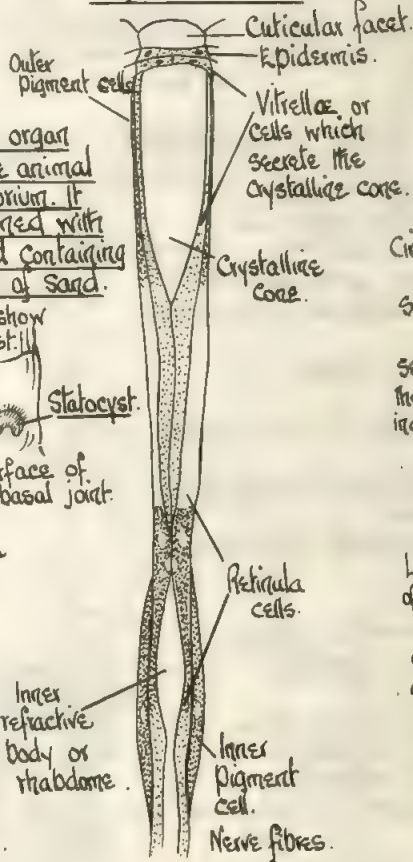 Cuticular facet.
Epidermis.
Outer
pigment cells
Vitrellæ or
cells which
secrete the
crystalline cone.
organ
animal
It
with
containing
of sand.
show
Crystalline
Cone.
Statocyst.
of
basal joint.
Retinula
cells.
Inner
refractive
body or
rhabdome.
Inner
Pigment
cell.
Nerve fibres.